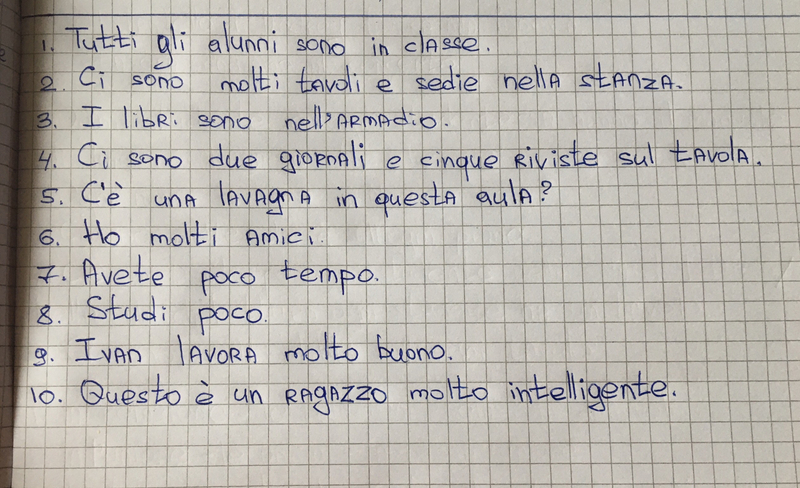 1. Tutti gli alunni sono in classe.
2. Ci sono molti tavoli e sedie nella stanza.
3. I libri sono nell'armadio.
4. Ci sono due giornali e cinque riviste sul tavola.
5. C'è una lavagna in questa aula?
6. Ho molti amici.
7. Avete poco tempo.
8. Studi poco.
9. Ivan lavora molto buono.
10. Questo è un ragazzo molto intelligente.